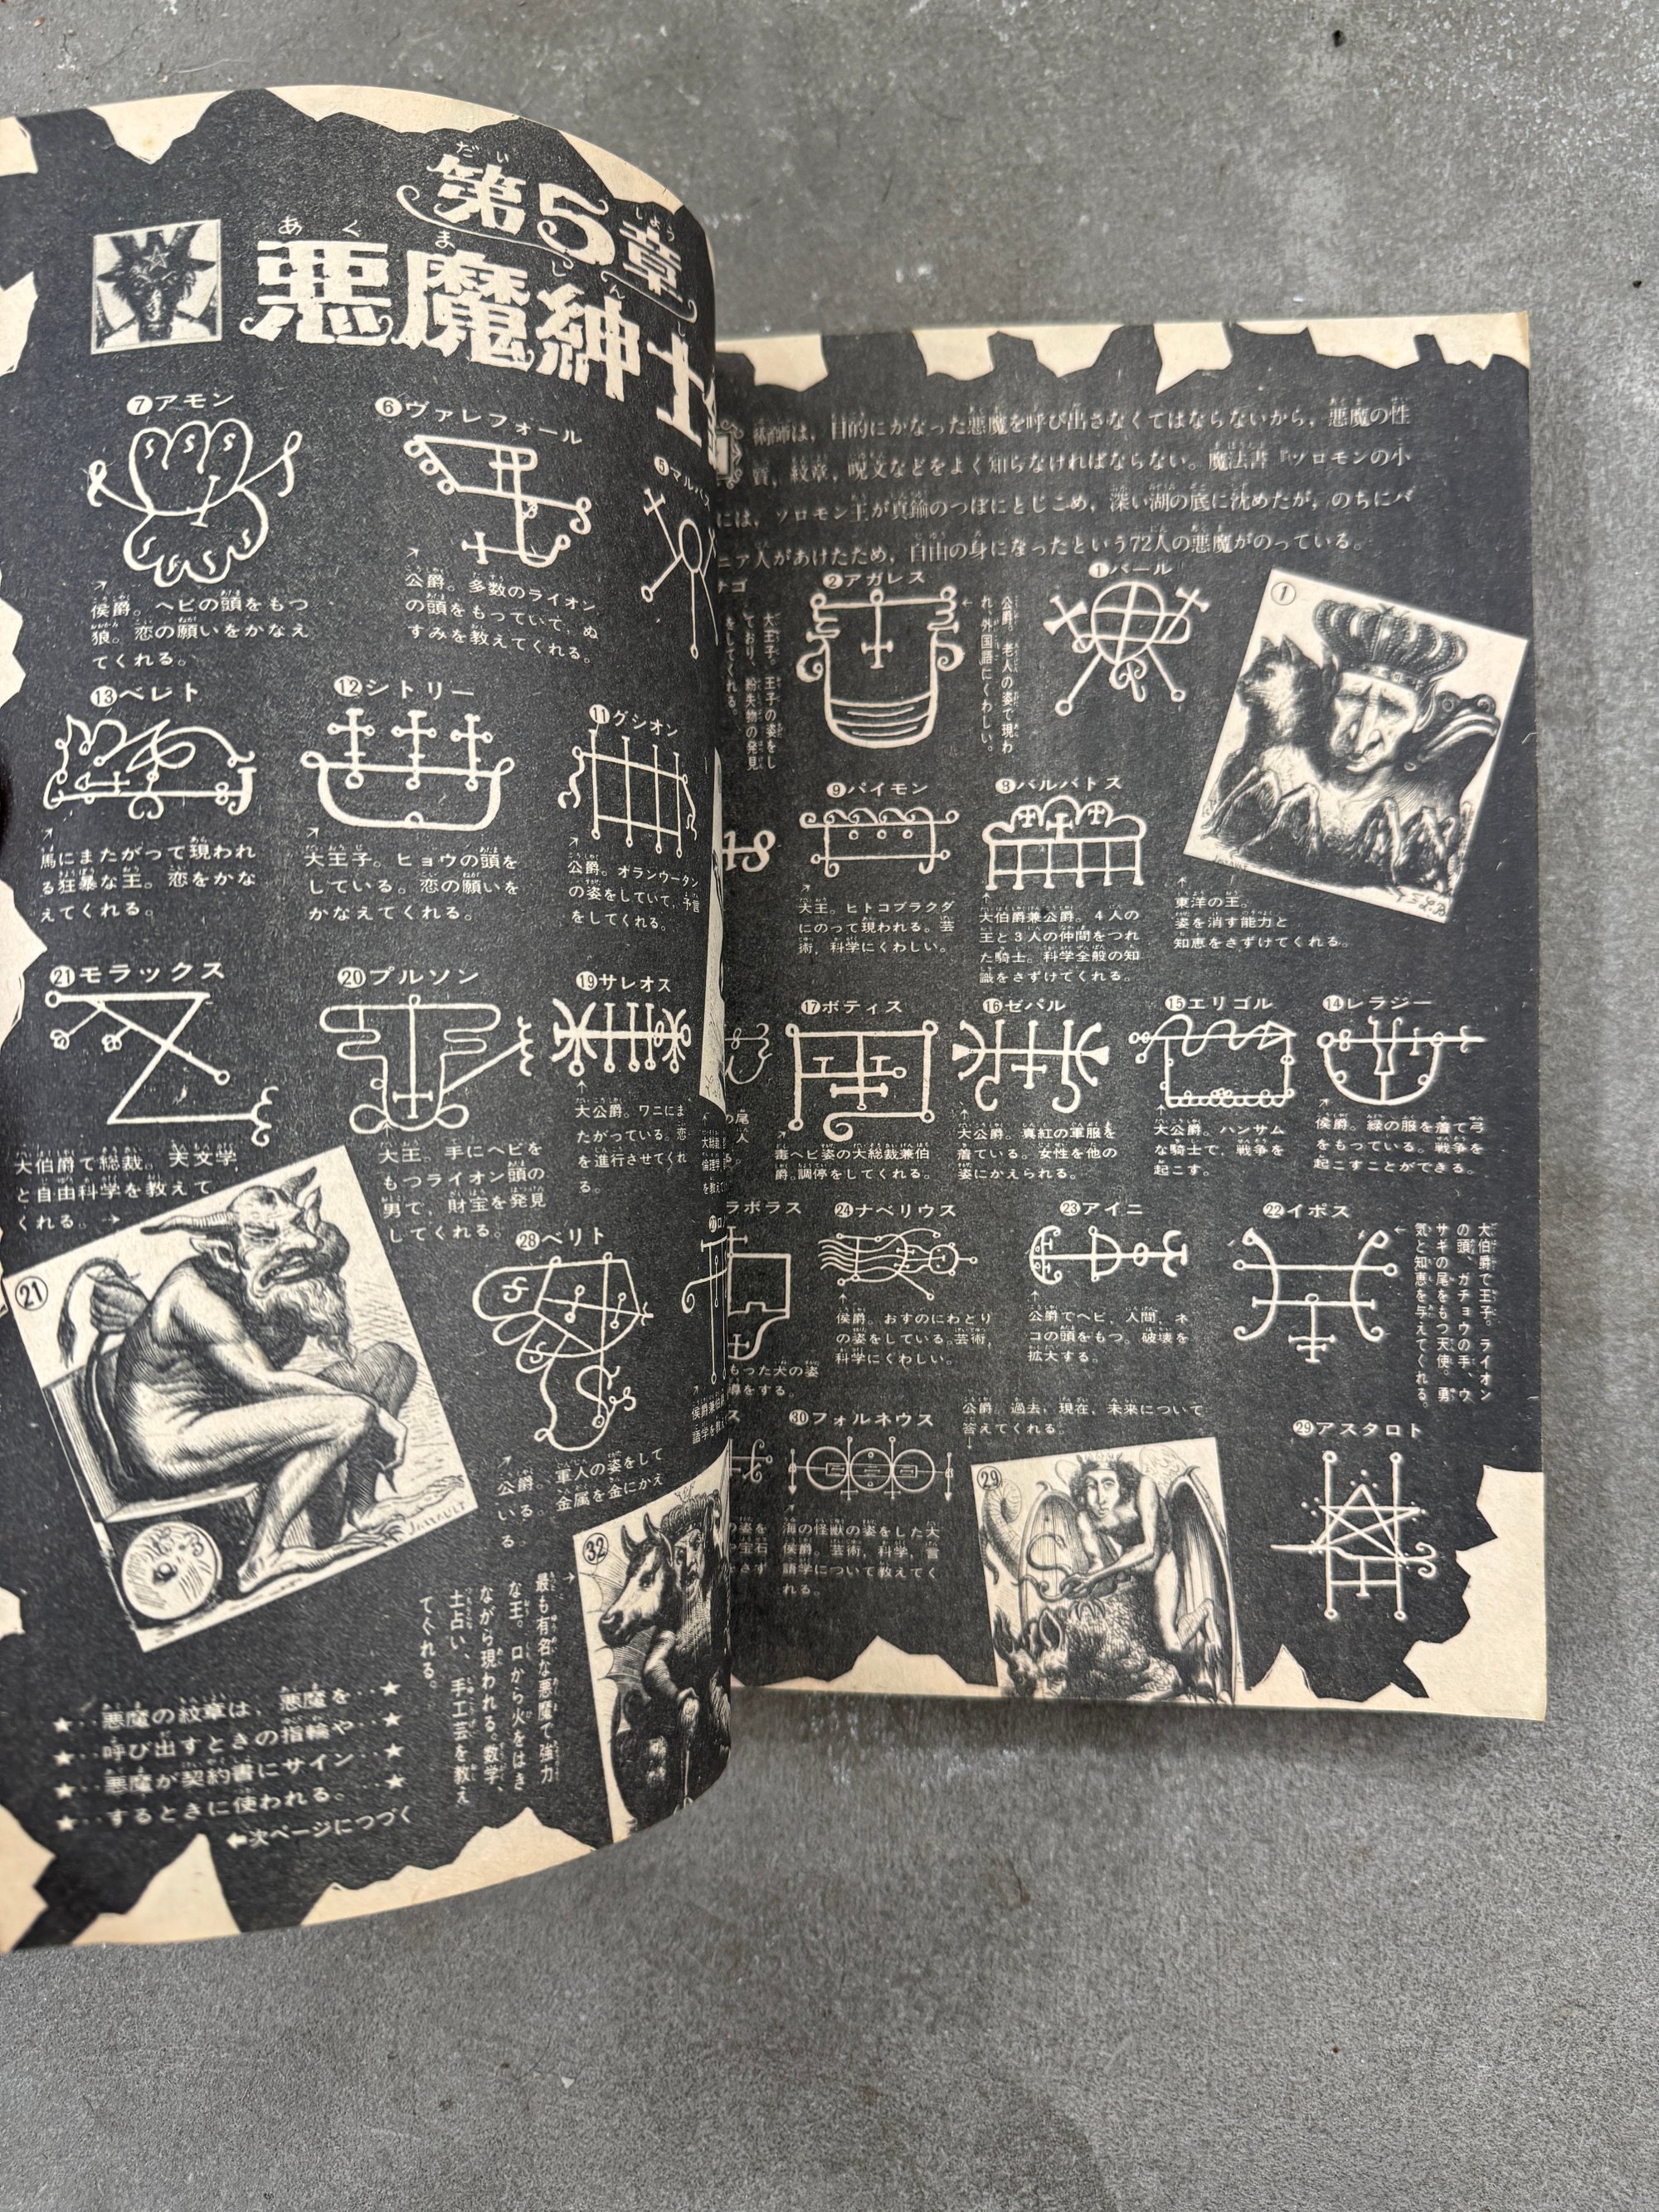 第5章
悪魔紳士
は，目的にかなった悪魔を呼び出さなくてはならないから，悪魔の性
質，紋章，呪文などをよく知らなければならない。魔法書『ソロモンの小
には，ソロモン王が真鍮のつぼにとじこめ，深い湖の底に沈めたが，のちにバ
ニア人があけたため，自由の身になったという72人の悪魔がのっている。
①バール
①
東洋の王。
姿を消す能力と
知恵をさずけてくれる。
②アガレス
公爵。老人の姿で現わ
れ、外国語にくわしい。
ナゴ
大王子。王子の姿をし
ており、紛失物の発見
をしてくれる。
⑤マルバス
⑥ヴァレフォール
公爵。多数のライオン
の頭をもっていて，ぬ
すみを教えてくれる。
⑦アモン
侯爵。ヘビの頭をもつ
狼。恋の願いをかなえ
てくれる。
⑧バルバトス
大伯爵兼公爵。4人の
王と3人の仲間をつれ
た騎士。科学全般の知
識をさずけてくれる。
⑨パイモン
大王。ヒトコブラクダ
にのって現われる。芸
術，科学にくわしい。
⑪グシオン
公爵。オランウータン
の姿をしていて，予言
をしてくれる。
⑫シトリー
大王子。ヒョウの頭を
している。恋の願いを
かなえてくれる。
⑬ベレト
馬にまたがって現われ
る狂暴な王。恋をかな
えてくれる。
⑭レラジー
侯爵。緑の服を着て弓
をもっている。戦争を
起こすことができる。
⑮エリゴル
大公爵。ハンサム
な騎士で，戦争を
起こす。
⑯ゼパル
大公爵。真紅の軍服を
着ている。女性を他の
姿にかえられる。
⑰ボティス
毒ヘビ姿の大総裁兼伯
爵。調停をしてくれる。
⑲サレオス
大公爵。ワニにま
たがっている。恋
を進行させてくれ
る。
⑳プルソン
大王。手にヘビを
もつライオン頭の
男で，財宝を発見
してくれる。
㉑モラックス
大伯爵で総裁。天文学
と自由科学を教えて
くれる。
㉑
㉒イポス
大伯爵で王子。ライオン
の頭、ガチョウの手、ウ
サギの尾をもつ天使。勇
気と知恵を与えてくれる。
㉓アイニ
公爵でヘビ，人間，ネ
コの頭をもつ。破壊を
拡大する。
㉔ナベリウス
侯爵。おすのにわとり
の姿をしている。芸術，
科学にくわしい。
ラボラス
もった犬の姿
導をする。
㉘ベリト
公爵。軍人の姿をして
いる。金属を金にかえ
る。
㉙アスタロト
公爵。過去，現在，未来について
答えてくれる。
㉙
㉚フォルネウス
海の怪獣の姿をした大
侯爵。芸術，科学，言
語学について教えてく
れる。
の姿を
や宝石
さず
㉜
最も有名な悪魔で強力
な王。口から火をはき
ながら現われる。数学、
土占い、手工芸を教え
てくれる。
★‥悪魔の紋章は，悪魔を‥★
★‥呼び出すときの指輪や‥★
★‥悪魔が契約書にサイン‥★
★‥するときに使われる。‥★
次ページにつづく
JARRAULT